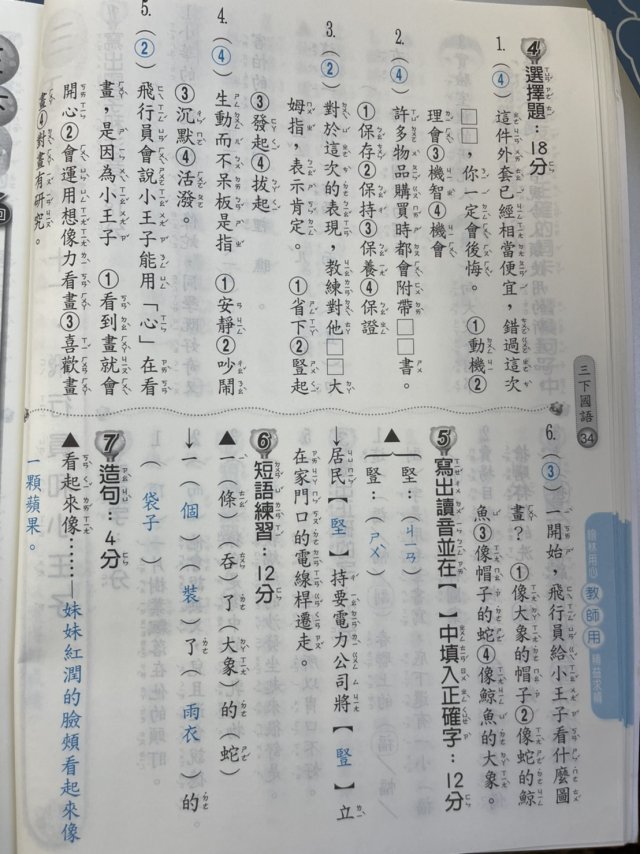 4 選擇題：18分
1.（④）這件外套已經相當便宜，錯過這次
□□，你一定會後悔。 ①動機②
理會③機智④機會
2.（④）許多物品購買時都會附帶□□書。
①保存②保持③保養④保證
3.（②）對於這次的表現，教練對他□□大
姆指，表示肯定。 ①省下②豎起
③發起④拔起
4.（④）生動而不呆板是指 ①安靜②吵鬧
③沉默④活潑。
5.（②）飛行員會說小王子能用「心」在看
畫，是因為小王子 ①看到畫就會
開心②會運用想像力看畫③喜歡畫
畫④對畫有研究。
三下國語 34
翰林用心 教師用 精益求精
6.（③）一開始，飛行員給小王子看什麼圖
畫？ ①像大象的帽子②像蛇的鯨
魚③像帽子的蛇④像鯨魚的大象。
5 寫出讀音並在【 】中填入正確字：12分
▲ 堅：（ㄐㄧㄢ）
豎：（ㄕㄨˋ）
↓居民【堅】持要電力公司將【豎】立
在家門口的電線桿遷走。
6 短語練習：12分
▲一（條）（吞）了（大象）的（蛇）
↓一（個）（裝）了（雨衣）的
（袋子）
7 造句：4分
▲看起來像……—妹妹紅潤的臉頰看起來像
一顆蘋果。